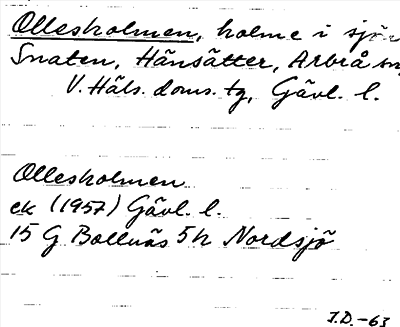 Ollesholmen, holme i sjön
Snaten, Hänsätter, Arbrå sn,
V. Häls. doms. tg, Gävl. l.
Ollesholmen
ek (1957) Gävl. l.
15 G Bollnäs 5h Nordsjö
J.D.-63